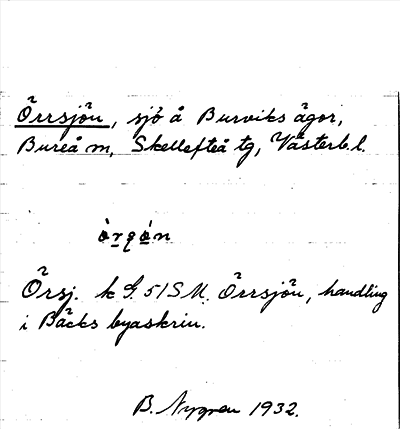 Örrsjön, sjö å Burviks ägor,
Bureå m, Skellefteå tg, Västerb.l.
Örsj. k G. 51 SM. Örrsjön, handling
i Bäcks byaskrin.
B. Nygren 1932.